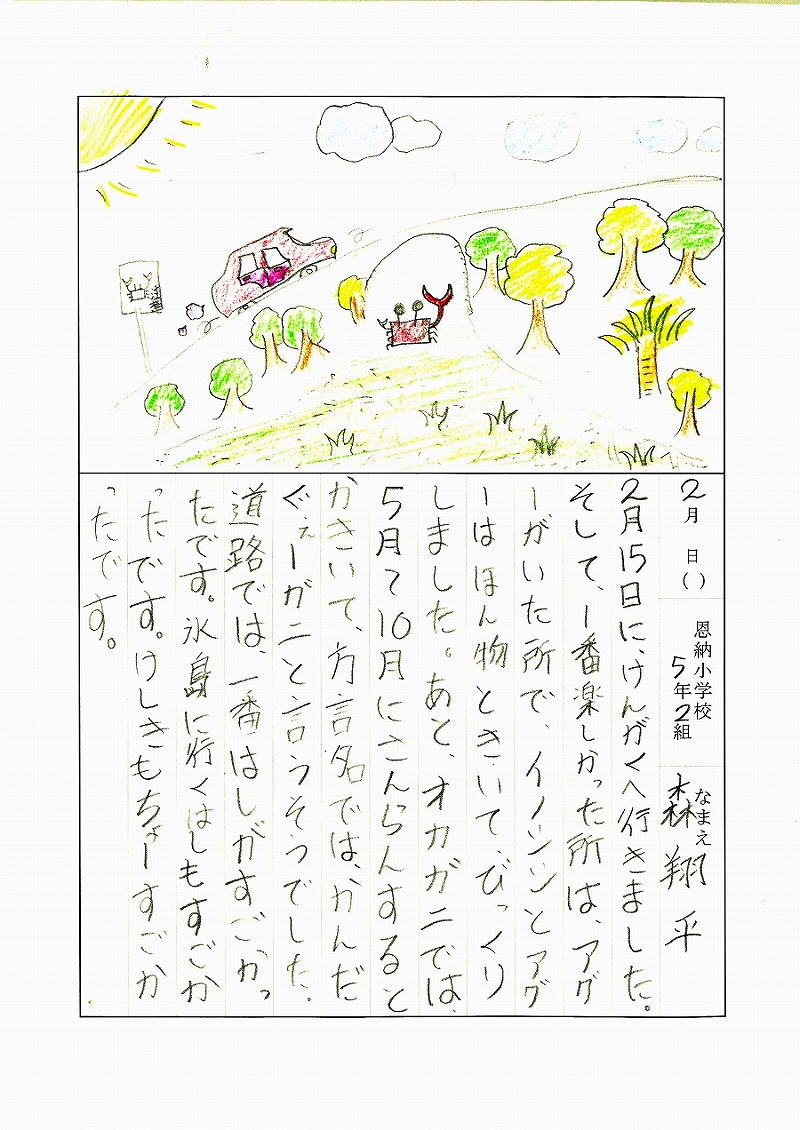 注意
2月 日( )
恩納小学校
5年2組
なまえ
森 翔平
2月15日に、けんがくへ行きました。
そして、1番楽しかった所は、アグ
ーがいた所で、イノシシとアグ
ーはほん物ときいて、びっくり
しました。あと、オカガニでは、
5月て10月にさんらんすると
かきいて、方言名では、かんだ
ぐぇーガニと言うそうでした。
道路では、一番はしがすごかっ
たです。氷島に行くはしもすごか
ったです。けしきもちょーすごか
ったです。